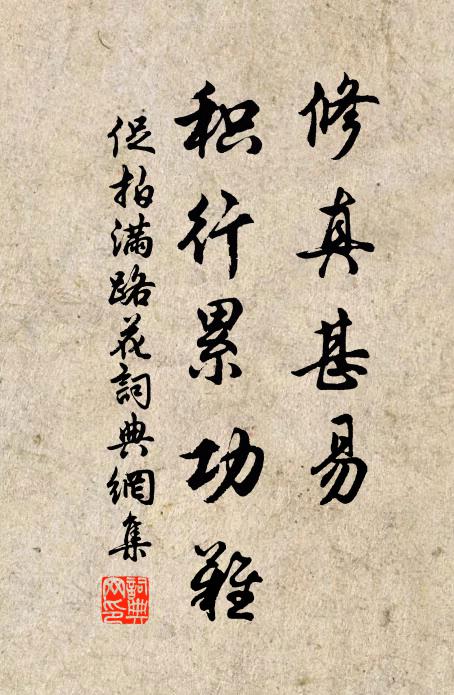 修真甚易
积行累功难
促拍满路花詞典網集
詞典网印